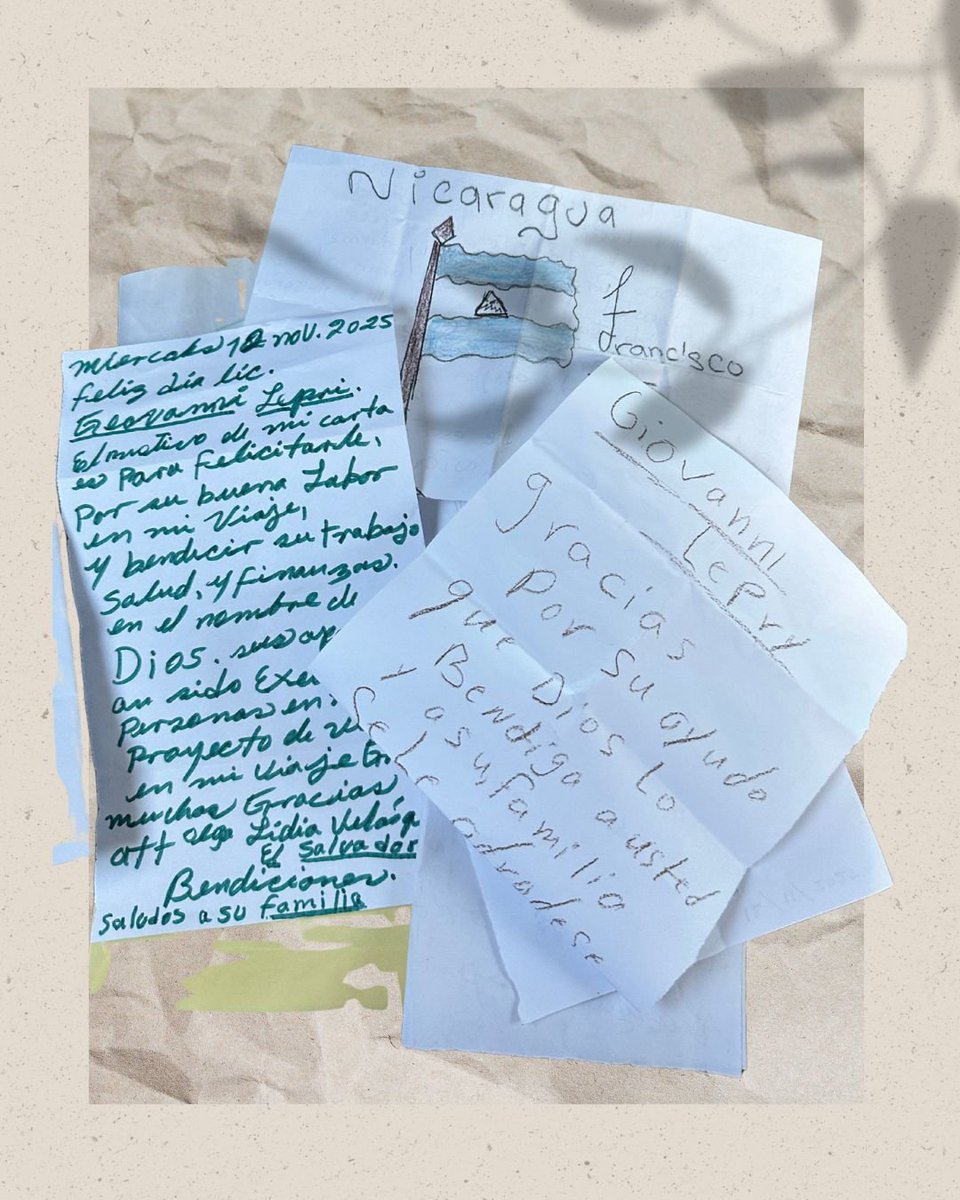 Nicaragua
f
francisco
miercoles 12 nov. 2025
feliz día lic.
Geovanni Lepri.
El motivo de mi carta
es Para felicitarle,
Por su buena Labor
en mi Viaje,
y bendecir su trabajo
Salud, y finanzas.
en el nombre de
Dios. sus
an sido
Personas en
Proyecto de
en mi viaje
muchas Gracias
att Lidia
El Salvador
Bendiciones.
Saludos a su familia
Giovanni
Lepry
gracias
Por su ayuda
que Dios Lo
Bendiga a usted
y a su familia
se le adradese